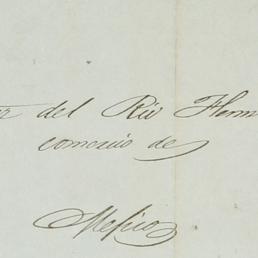 del Rio Herm
comercio de
Mejico